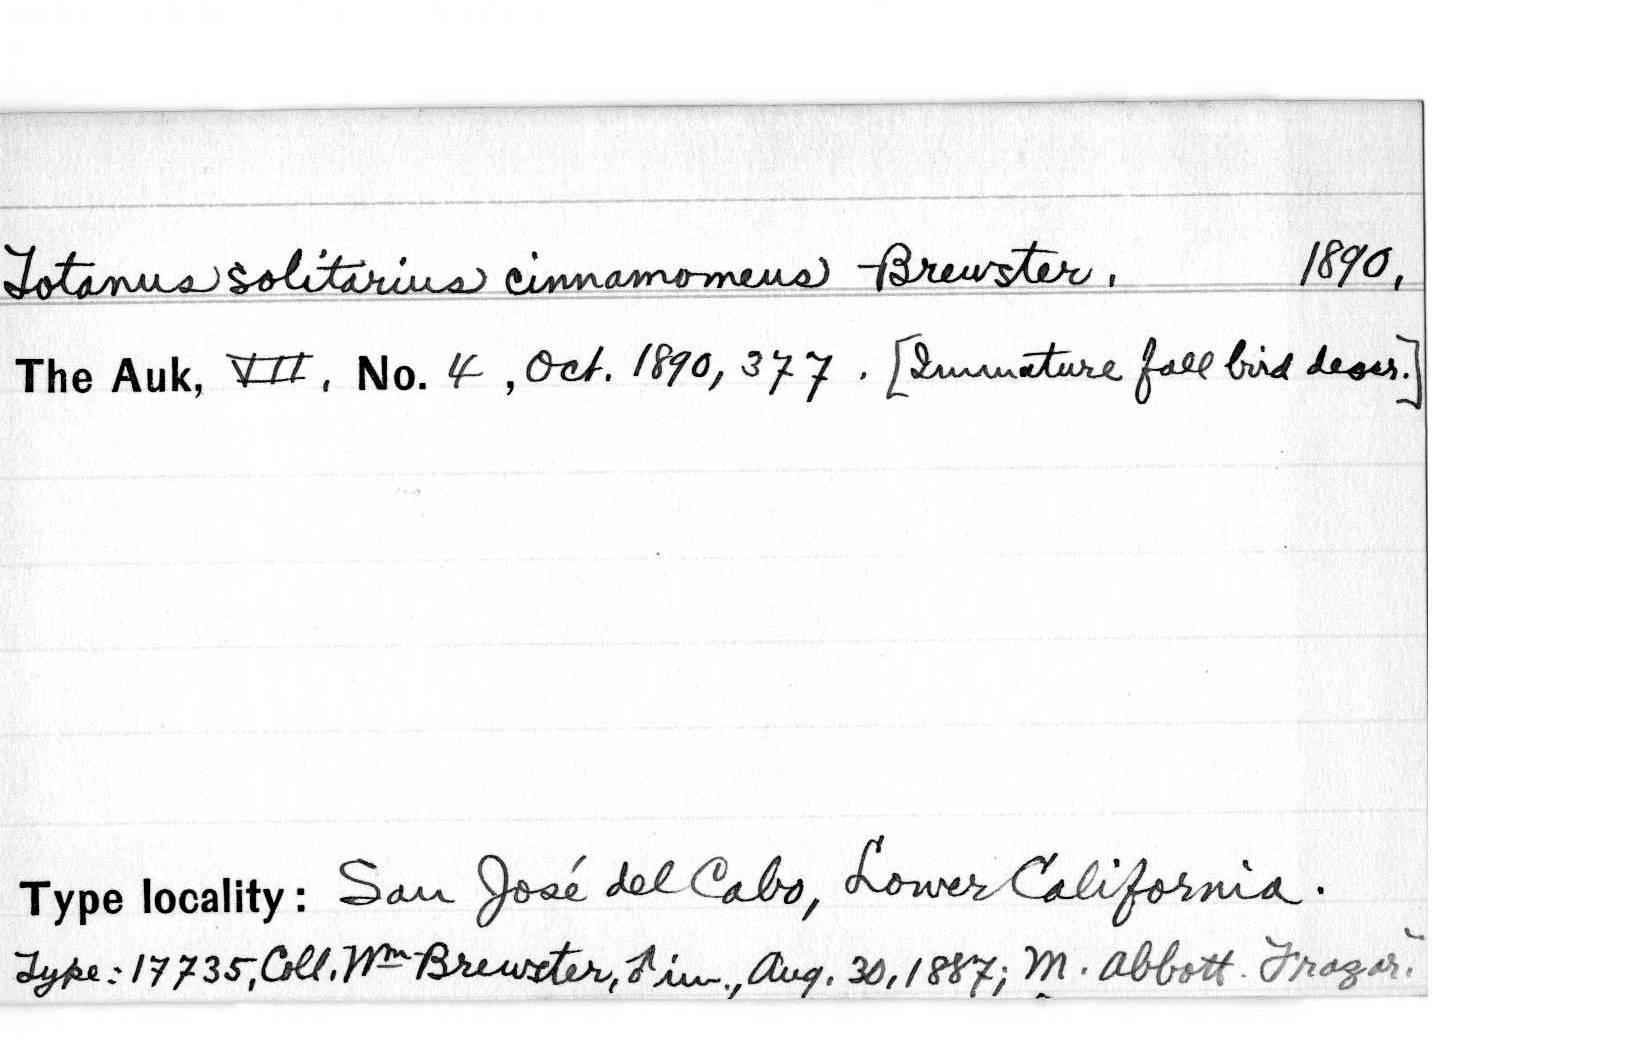 Totanus solitarius cinnamomeus Brewster. 1890,
The Auk, VII, No. 4, Oct. 1890, 377. [Immature fall bird descr.]
Type locality: San José del Cabo, Lower California.
Type: 17735, Coll. Wm Brewster, ♂ im., Aug. 30, 1887; M. Abbott Frazar.